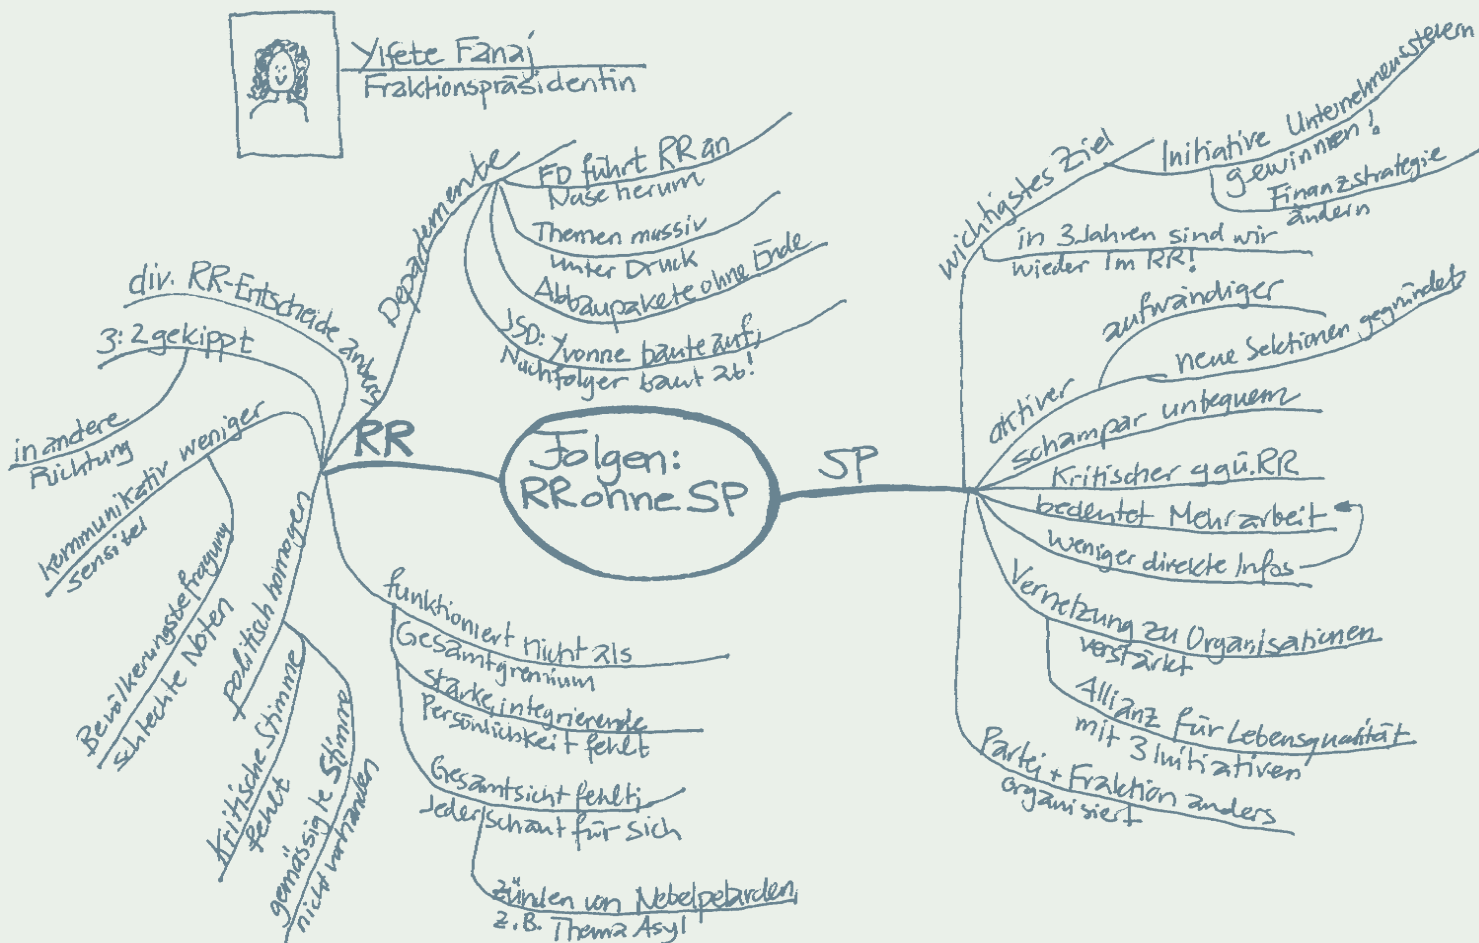 Ylfete Fanaj
Fraktionspräsidentin
Folgen:
RR ohne SP
RR
Departemente
FD führt RR an
Nase herum
Themen massiv
unter Druck
Abbaupakete ohne Ende
JSD: Yvonne baute auf,
Nachfolger baut ab!
div. RR-Entscheide anders
3:2 gekippt
in andere
Richtung
kommunikativ weniger
sensibel
Bevölkerungsbefragung
schlechte Noten
politisch homogen
Kritische Stimme
fehlt
gemässigte Stimme
nicht vorhanden
funktioniert nicht als
Gesamtgremium
starke, integrierende
Persönlichkeit fehlt
Gesamtsicht fehlt;
Jeder schaut für sich
Zünden von Nebelpetarden,
z.B. Thema Asyl
SP
wichtigstes Ziel
Initiative Unternehmenssteuern
gewinnen!
Finanzstrategie
ändern
in 3 Jahren sind wir
wieder im RR!
aktiver
aufwändiger
neue Sektionen gegründet
schampar unbequem
Kritischer ggü. RR
bedeutet Mehrarbeit
weniger direkte Infos
Vernetzung zu Organisationen
verstärkt
Allianz für Lebensqualität
mit 3 Initiativen
Partei + Fraktion anders
organisiert